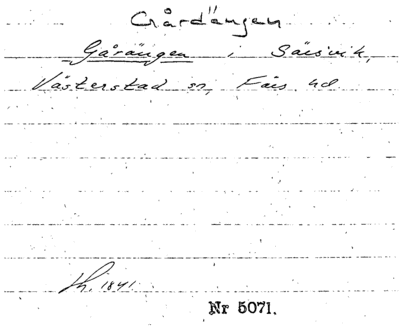 Gårdängen
Gårängen i Särsvik,
Västerstad sn, Färs hd
h. 1841
Nr 5071.